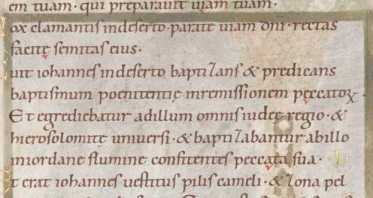 em tuam · qui preparauit uiam tuam ·
ox clamantis in deserto · parate uiam dni · rectas
facite semitas eius ·
uit iohannes in deserto baptizans & predicans
baptismum poenitentię in remissionem peccatoꝝ ·
Et egrediebatur ad illum omnis iudeę regio · &
hierosolomitę uniuersi · & baptizabantur ab illo
in iordane flumine confitentes peccata sua ·
t erat iohannes uestitus pilis cameli · & zona pel